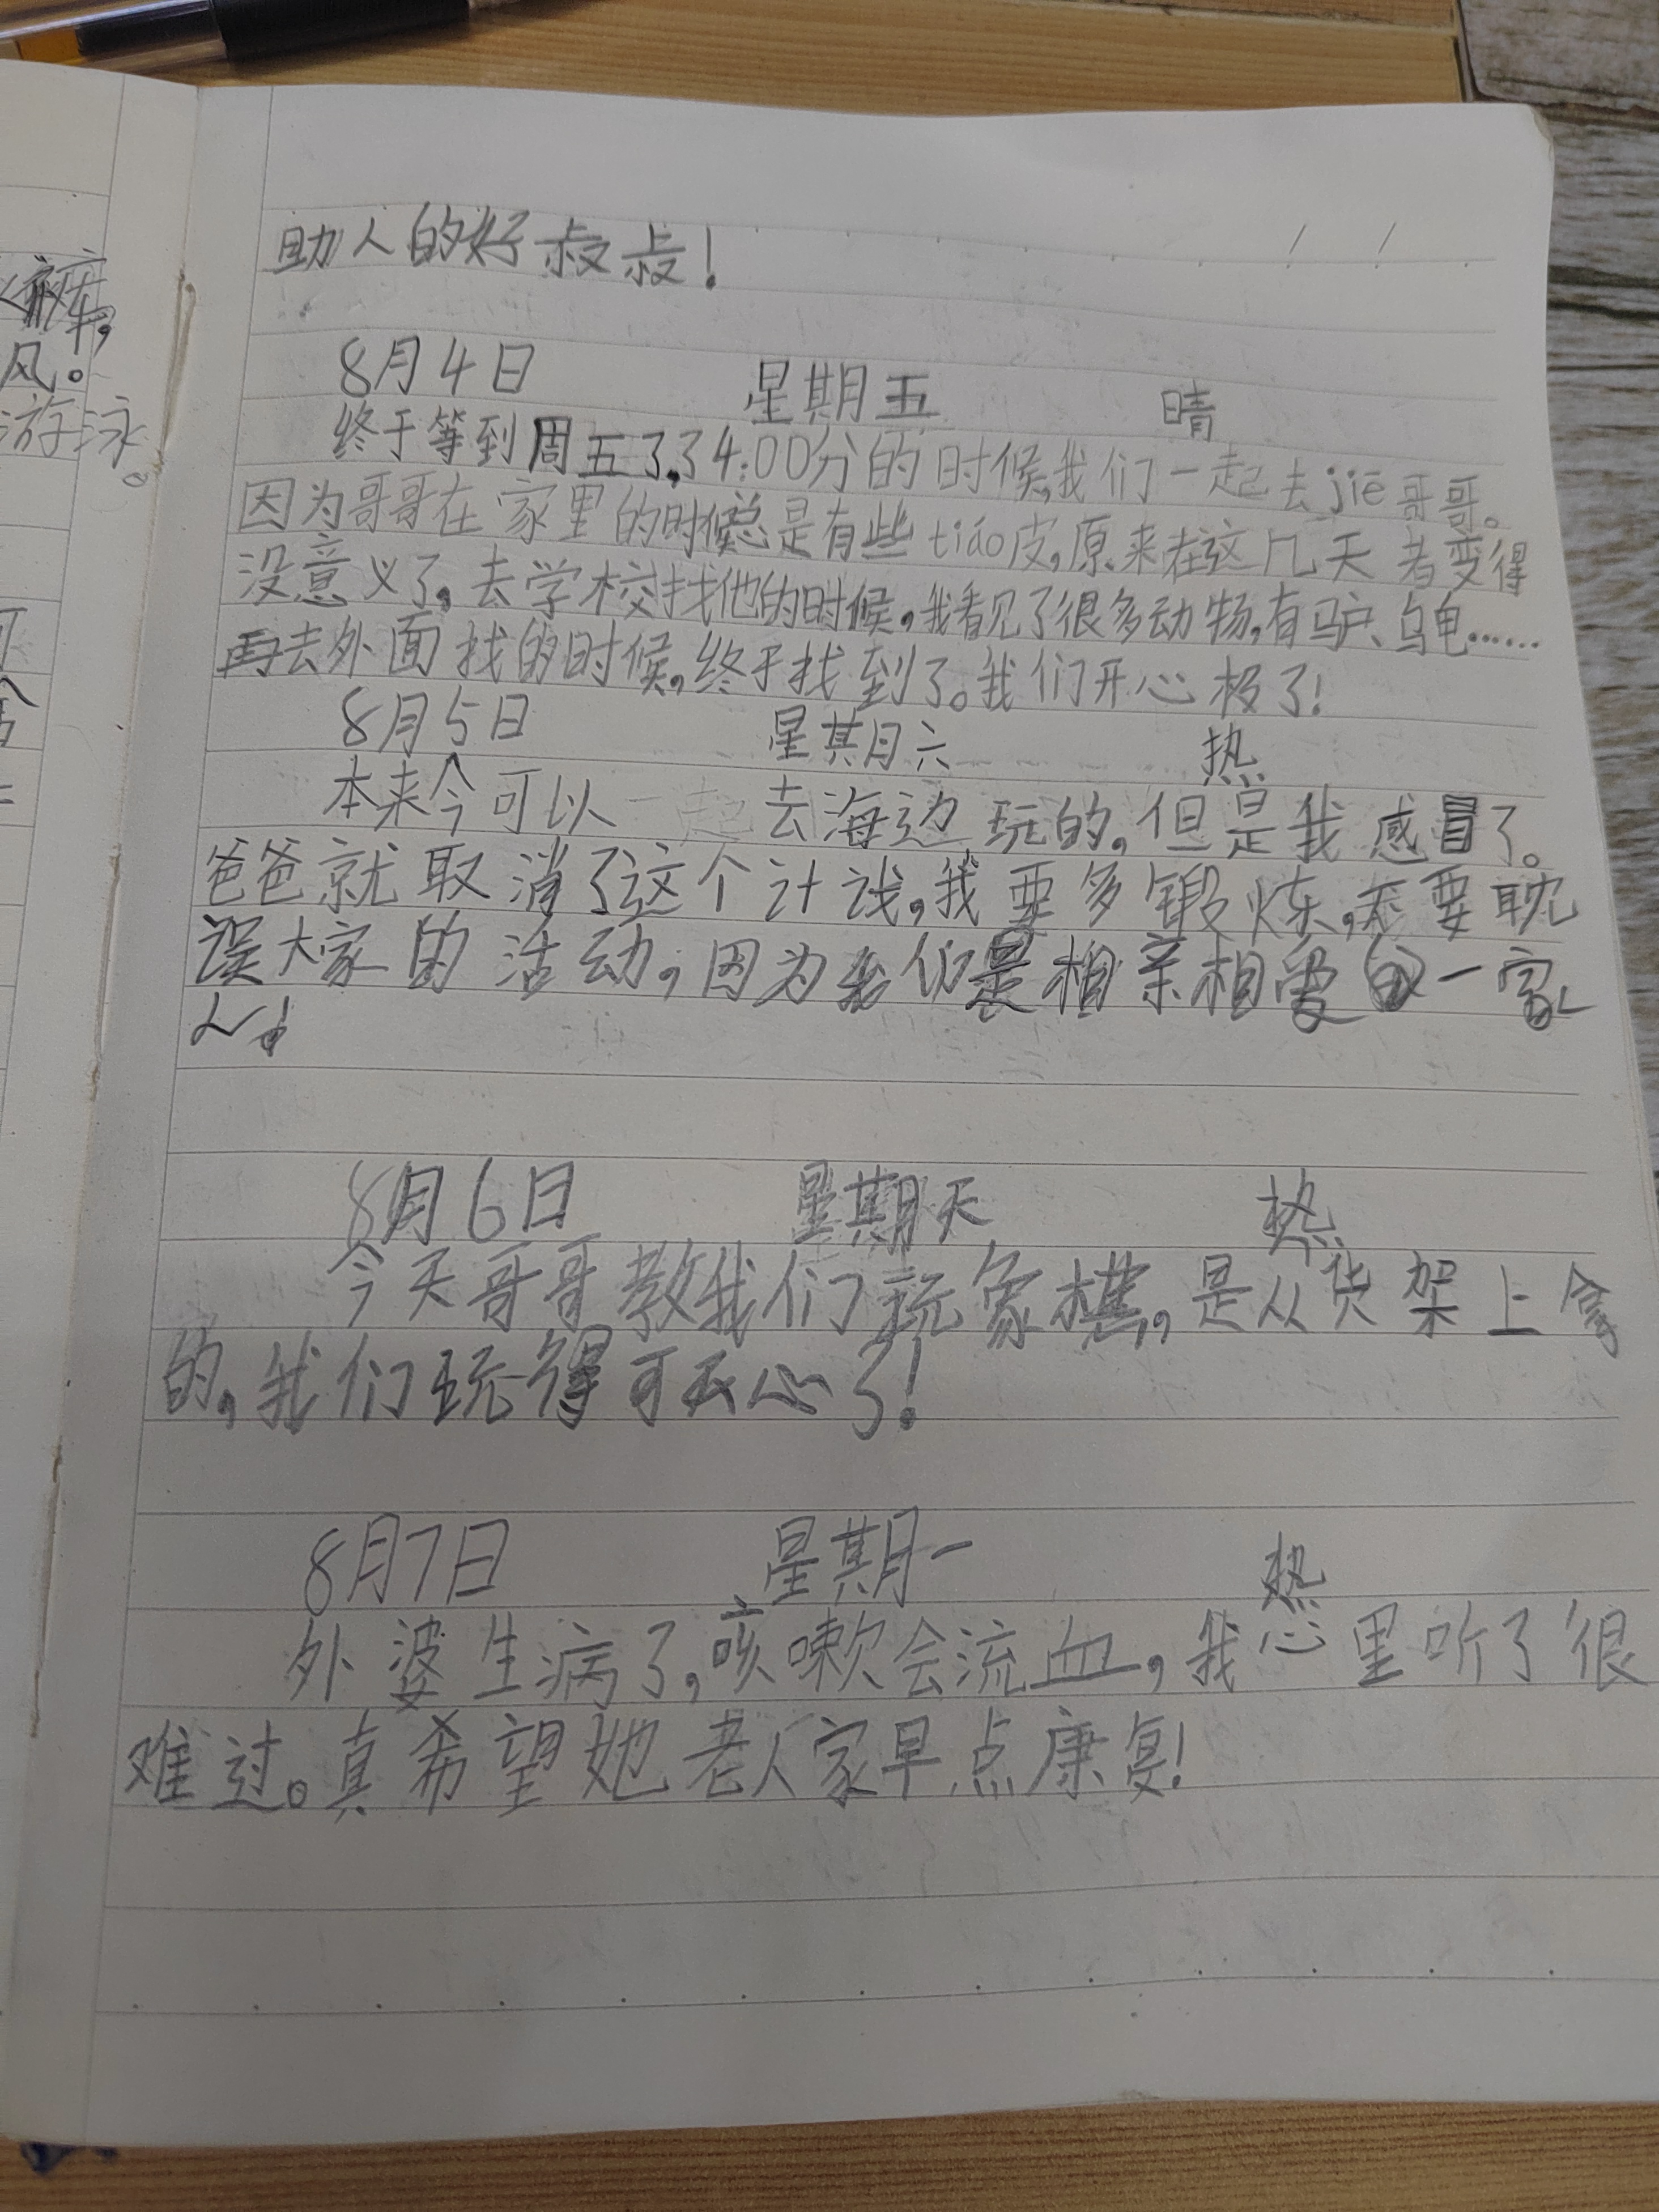 裤,
风。
游泳。
助人的好叔叔!
8月4日 星期五 晴
终于等到周五了,34:00分的时候,我们一起去jiē哥哥。
因为哥哥在家里的时候总是有些tiáo皮,原来在这几天者变得
没意义了,去学校找他的时候,我看见了很多动物,有驴、乌龟……
再去外面找的时候,终于找到了。我们开心极了!
8月5日 星期六 热
本来今可以一起去海边玩的,但是我感冒了。
爸爸就取消了这个计战,我要多锻炼,不要耽
误大家的活动,因为我们是相亲相爱的一家
人!
8月6日 星期天 热
今天哥哥教我们玩象棋,是从货架上拿
的,我们玩得可开心了!
8月7日 星期一 热
外婆生病了,咳嗽会流血,我心里听了很
难过。真希望她老人家早点康复!